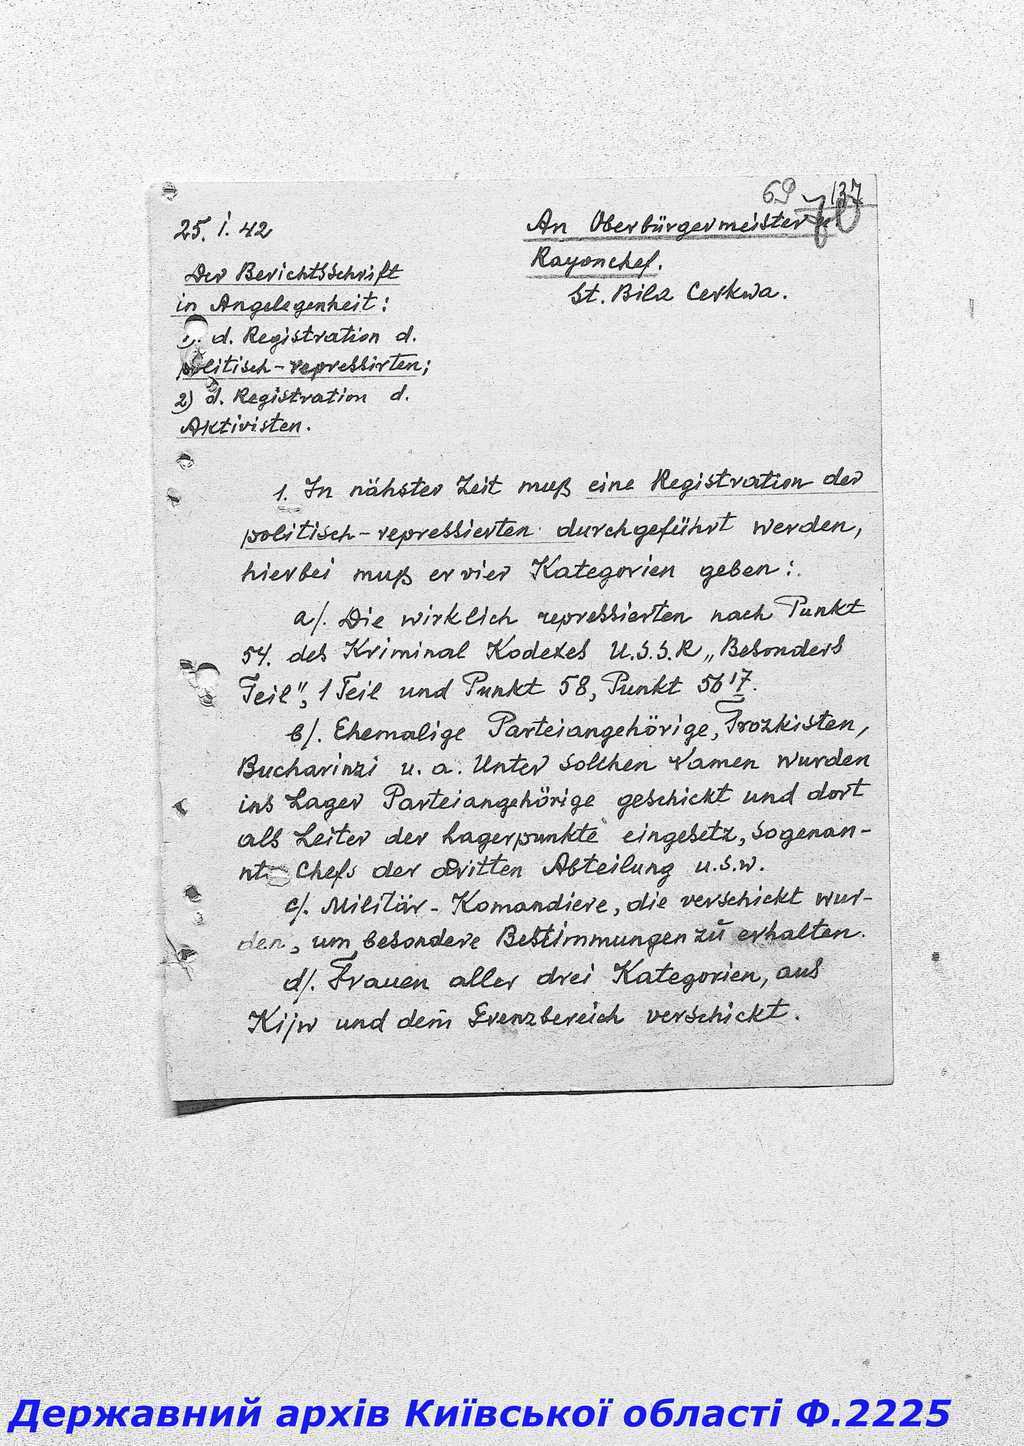 69 137
25. I. 42
An Oberbürgermeister
Rayonchef.
St. Bila Cerkwa.
Der Berichtsschrift
in Angelegenheit:
1). d. Registration d.
politisch-repressirten;
2) d. Registration d.
Aktivisten.
1. In nähster Zeit muß eine Registration der
politisch-repressierten durchgeführt werden,
hierbei muß er vier Kategorien geben:
a/. Die wirklich repressierten nach Punkt
54. des Kriminal Kodexes U.S.S.R „Besonders
Teil", 1 Teil und Punkt 58, Punkt 56 17.
b/. Ehemalige Parteiangehörige, Trozkisten,
Bucharinzi u. a. Unter solchen Namen wurden
ins Lager Parteiangehörige geschickt und dort
als Leiter der Lagerpunkte eingesetz, sogenan-
nt. Chefs der dritten Abteilung u.s.w.
c/. Militär-Komandiere, die verschickt wur-
den, um besondere Bestimmungen zu erhalten.
d/. Frauen aller drei Kategorien, aus
Kijw und dem Grenzbereich verschickt.
Державний архів Київської області Ф.2225